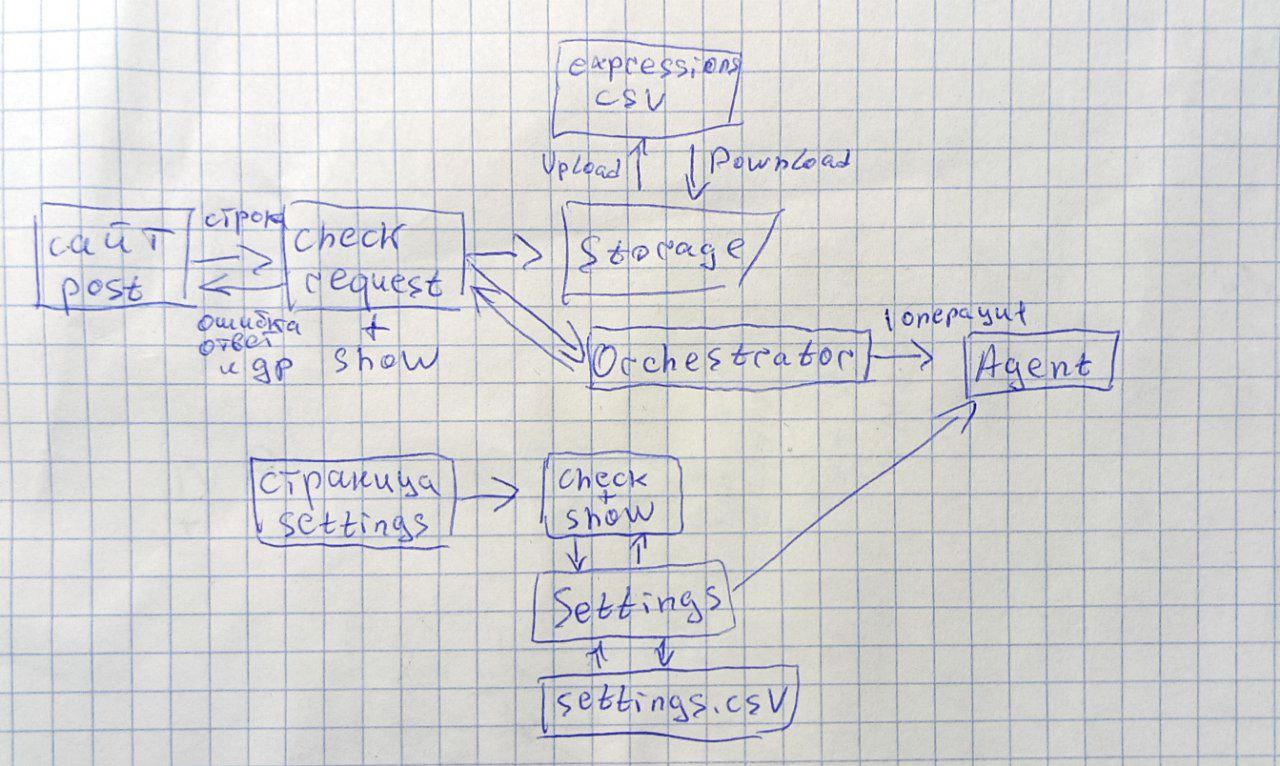 expressions
csv
Upload
Download
сайт
post
строка
ошибка
ответ
и др
check
request
+
show
Storage
Orchestrator
1 операция
Agent
страница
settings
check
+
show
Settings
settings.csv